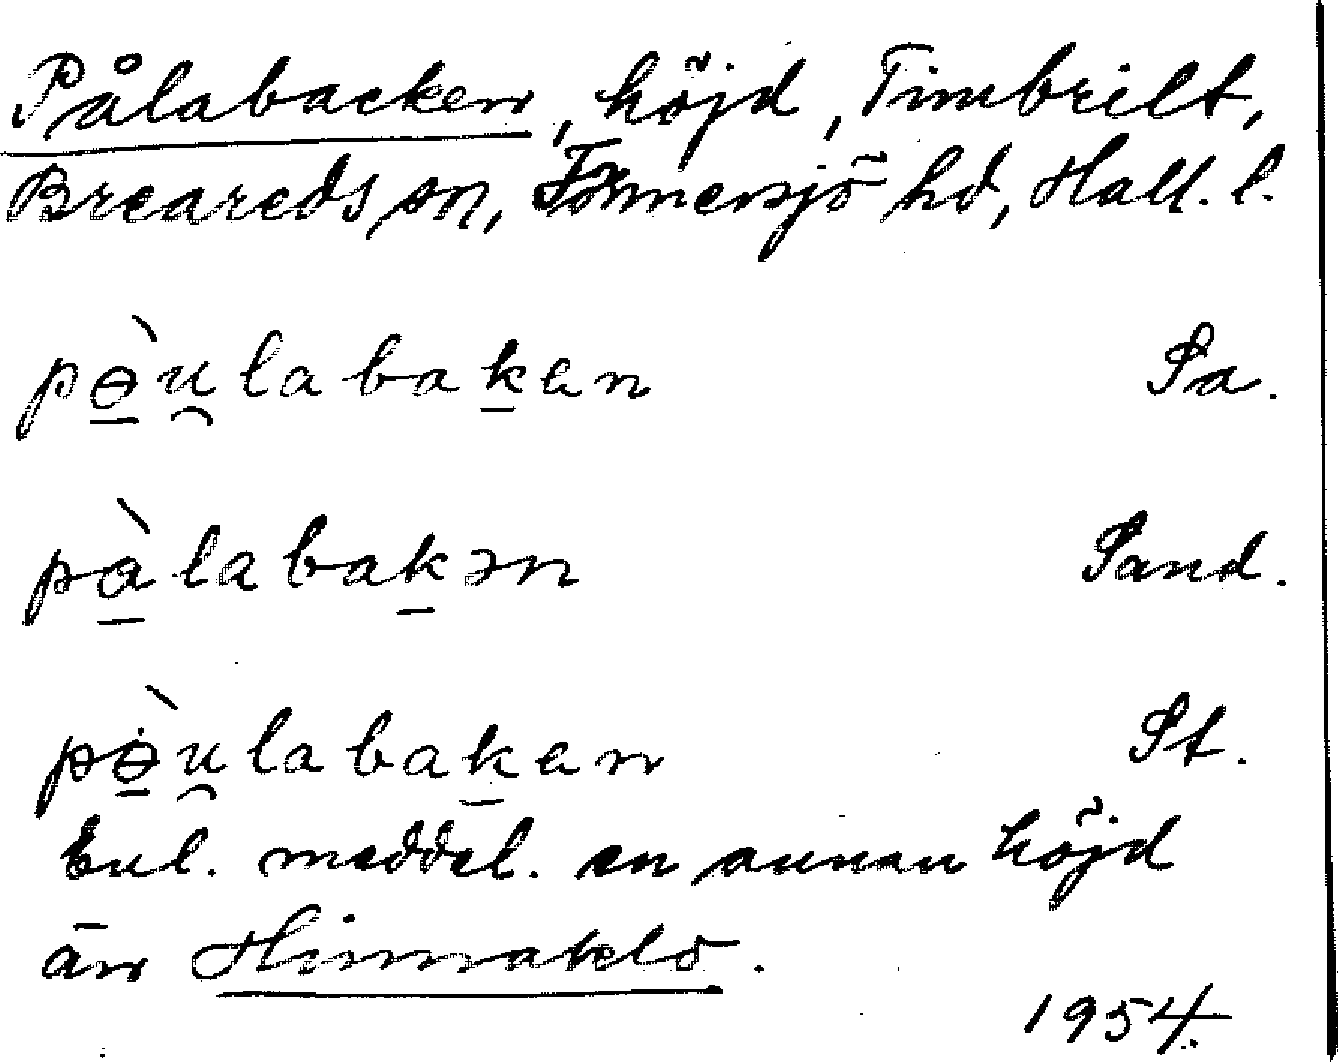 Pålabacken, höjd, Timbrilt,
Breareds sn, Tönnersjö hd, Hall. l.
pɵ̀u̯labaken Sa.
pàlabakən Sand.
pɵ̀u̯labaken St.
Enl. meddel. en annan höjd
än Hinnaklö.
1954.